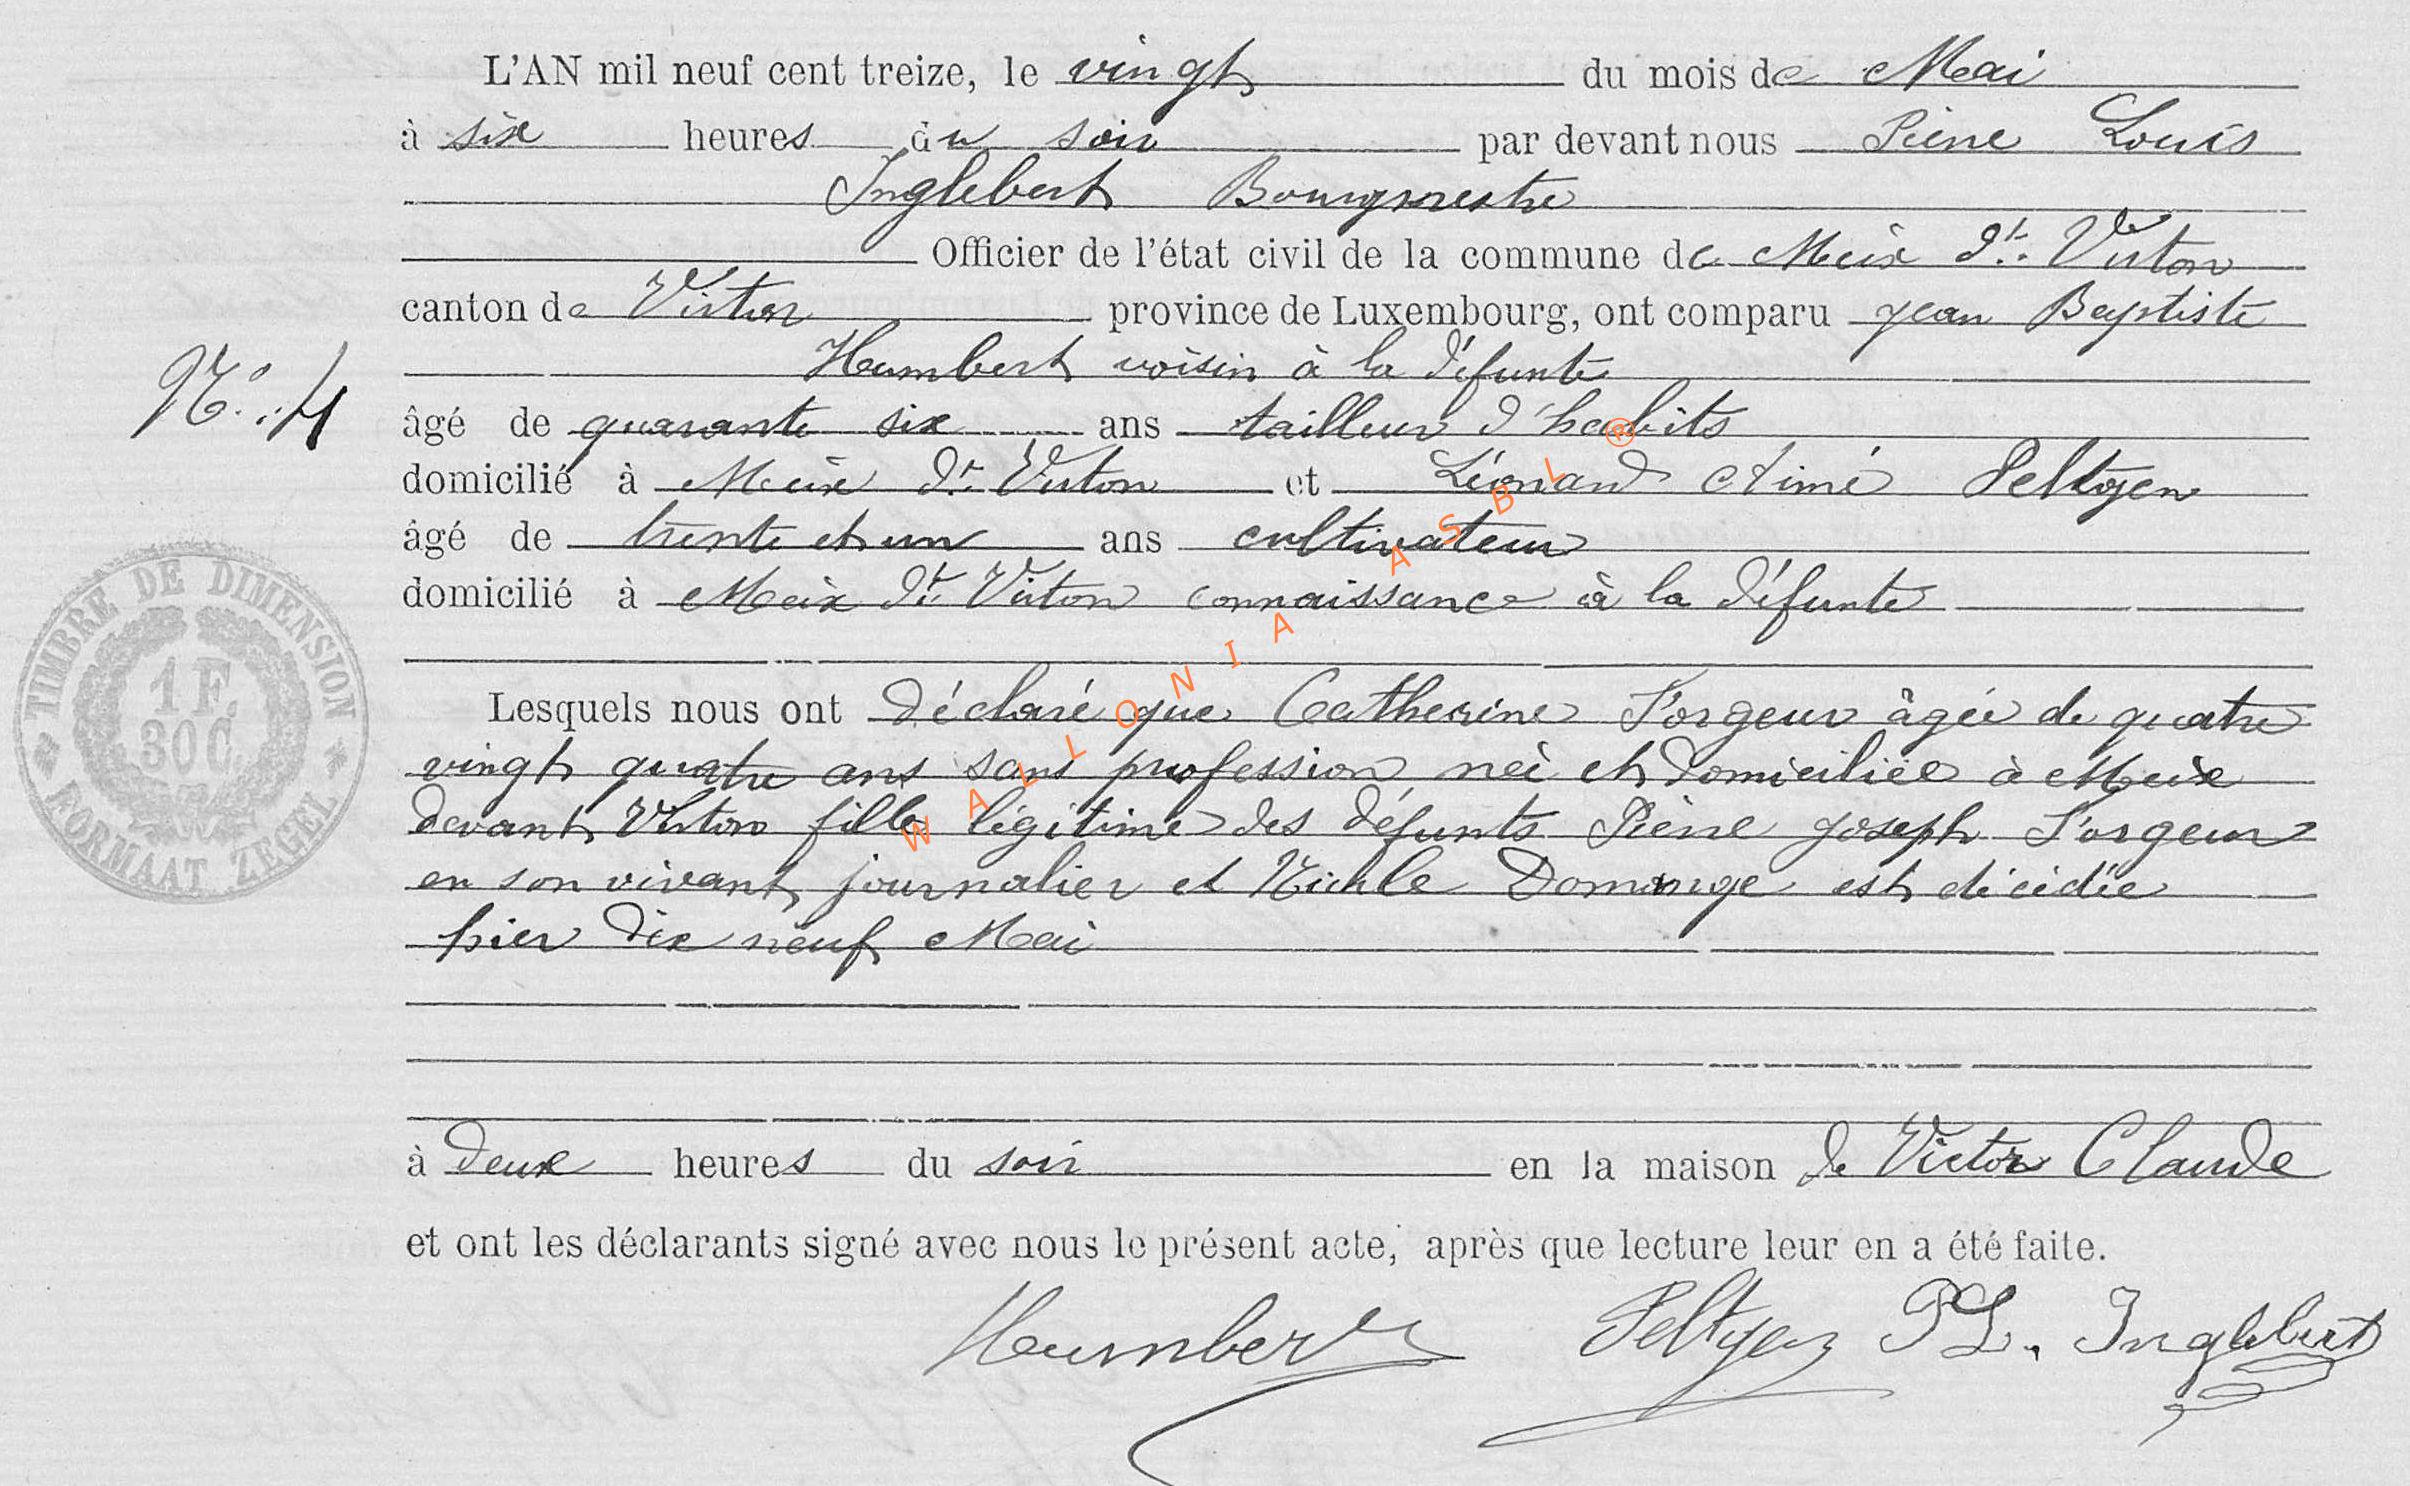 L'AN mil neuf cent treize, le vingt du mois de Mai
à six heures du soir par devant nous Pierre Louis
Inglebert Bourgmestre
Officier de l'état civil de la commune de Meix dt. Virton
canton de Virton province de Luxembourg, ont comparu Jean Baptiste
Humbert voisin à la défunte
N° 4
âgé de quarante six ans tailleur d'habits
domicilié à Meix dt. Virton et Léonard Aimé Peltgen
âgé de trente et un ans cultivateur
domicilié à Meix dt. Virton connaissance à la défunte
TIMBRE DE DIMENSION
1 F.
30 C.
FORMAAT ZEGEL
Lesquels nous ont déclaré que Catherine Forgeur âgée de quatre
vingt quatre ans sans profession née et domiciliée à Meix
devant Virton fille légitime des défunts Pierre Joseph Forgeur
en son vivant journalier et Domange est décédée
hier dix neuf Mai
à deux heures du soir en la maison de Victor Claude
et ont les déclarants signé avec nous le présent acte, après que lecture leur en a été faite.
Humbert Peltgen PL. Inglebert
WALLONIA ASBL ®